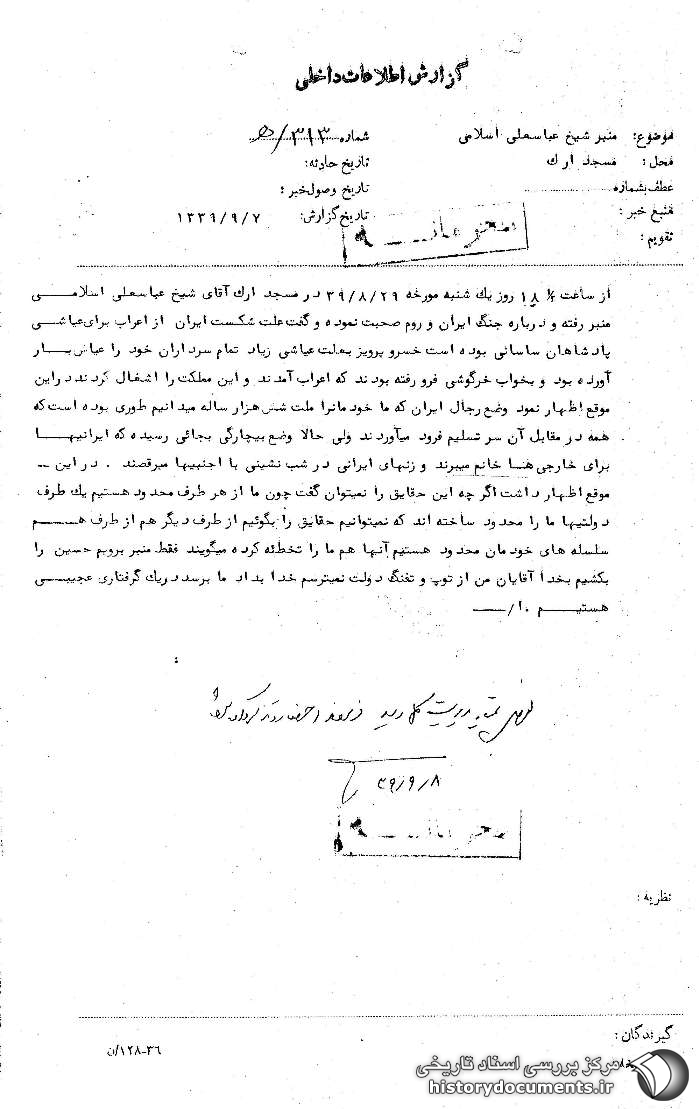 گزارش اطلاعات داخلی
موضوع: منبر شیخ عباسعلی اسلامی
شماره ۳۱۳/ه
محل: مسجد ارك
تاریخ حادثه:
عطف بشماره
تاریخ وصول خبر:
منبع خبر:
تاریخ گزارش: ۱۳۳۹/۹/۷
تقویم:
از ساعت ۱۸ روز یك شنبه مورخه ۳۹/۸/۲۹ در مسجد ارك آقای شیخ عباسعلی اسلامی
منبر رفته و درباره جنگ ایران و روم صحبت نموده و گفت علت شکست ایران از اعراب برای عیاشی
پادشاهان ساسانی بوده است خسرو پرویز بعلت عیاشی زیاد تمام سرداران خود را عیاش بار
آورده بود و بخواب خرگوشی فرو رفته بودند که اعراب آمدند و این مملکت را اشغال کردند در این
موقع اظهار نمود وضع رجال ایران که ما خودمانرا ملت شش هزار ساله میدانیم طوری بوده است که
همه در مقابل آن سر تسلیم فرود میآوردند ولی حالا وضع بیچارگی بجائی رسیده که ایرانیها
برای خارجی ها خانم میبرند و زنهای ایرانی در شب نشینی با اجنبیها میرقصند . در این ــ
موقع اظهار داشت اگر چه این حقایق را نمیتوان گفت چون ما از هر طرف محدود هستیم یك طرف
دولتیها ما را محدود ساخته اند که نمیتوانیم حقایق را بگوئیم از طرف دیگر هم از طرف هم
سلسله های خودمان محدود هستیم آنها هم ما را تخطئه کرده میگویند فقط منبر برویم حسین را
بکشیم بخدا آقایان من از توپ و تفنگ دولت نمیترسم خدا بداد ما برسد در یك گرفتاری عجیبی
هستیم ۱۰/ــ
۳۹/۹/۸
نظریه:
گیرندگان:
۱۲۸-۳۶/ن
مرکز بررسی اسناد تاریخی
historydocuments.ir